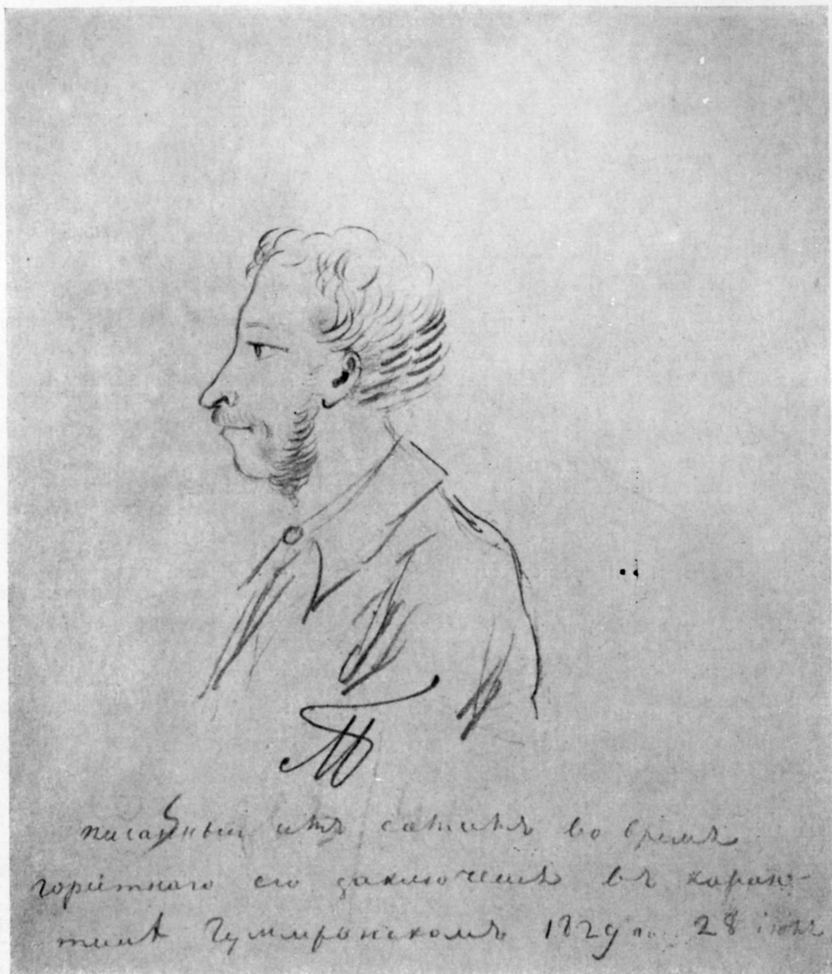 писанный имъ самимъ во время
горестнаго его заключенія въ каран-
тинѣ Гуммринскомъ 1829 28 іюля